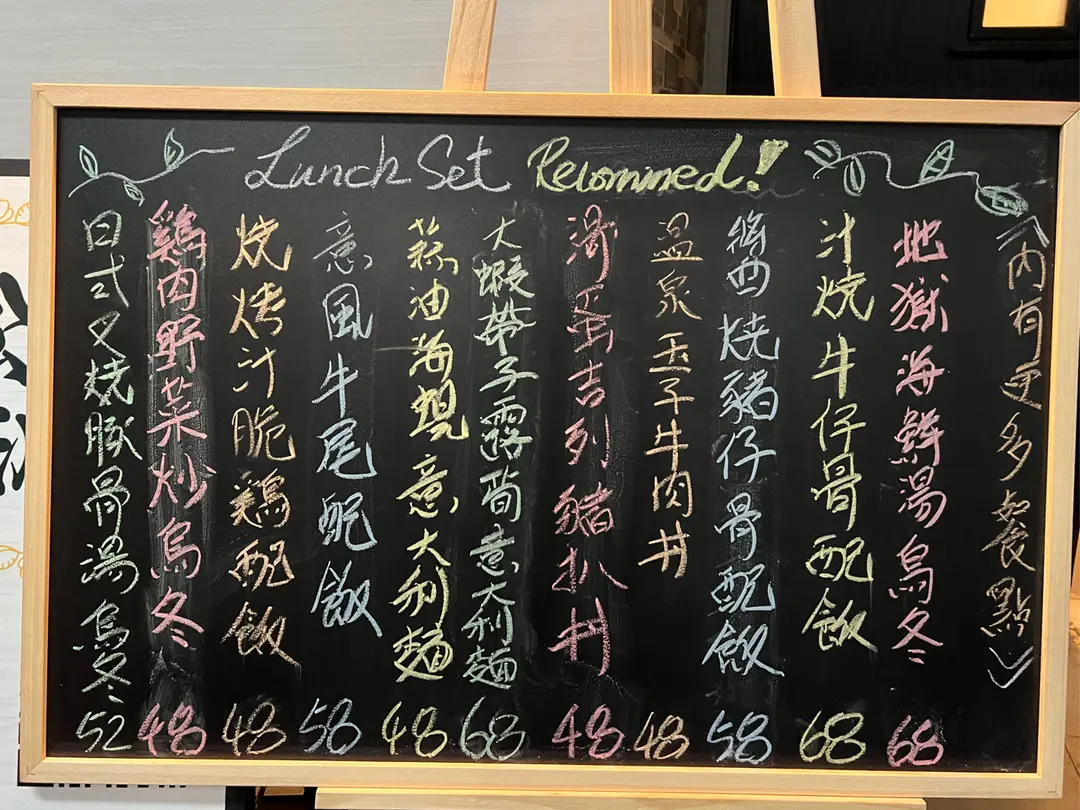 Lunch Set Recommed!
《内有更多餐點》
地獄海鮮湯烏冬 68
汁燒牛仔骨配飯 68
醬燒豬仔骨配飯 58
温泉玉子牛肉丼 48
滑蛋吉列豬扒丼 48
大蝦帶子露筍意大利麵 68
蒜油海蜆意大利麵 48
意風牛尾配飯 58
燒烤汁脆鷄配飯 48
鷄肉野菜炒烏冬 48
日式叉燒豚骨湯烏冬 52